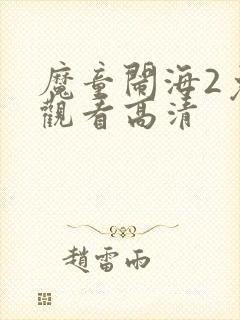 魔童鬧海2
觀看高清
趙雷雨